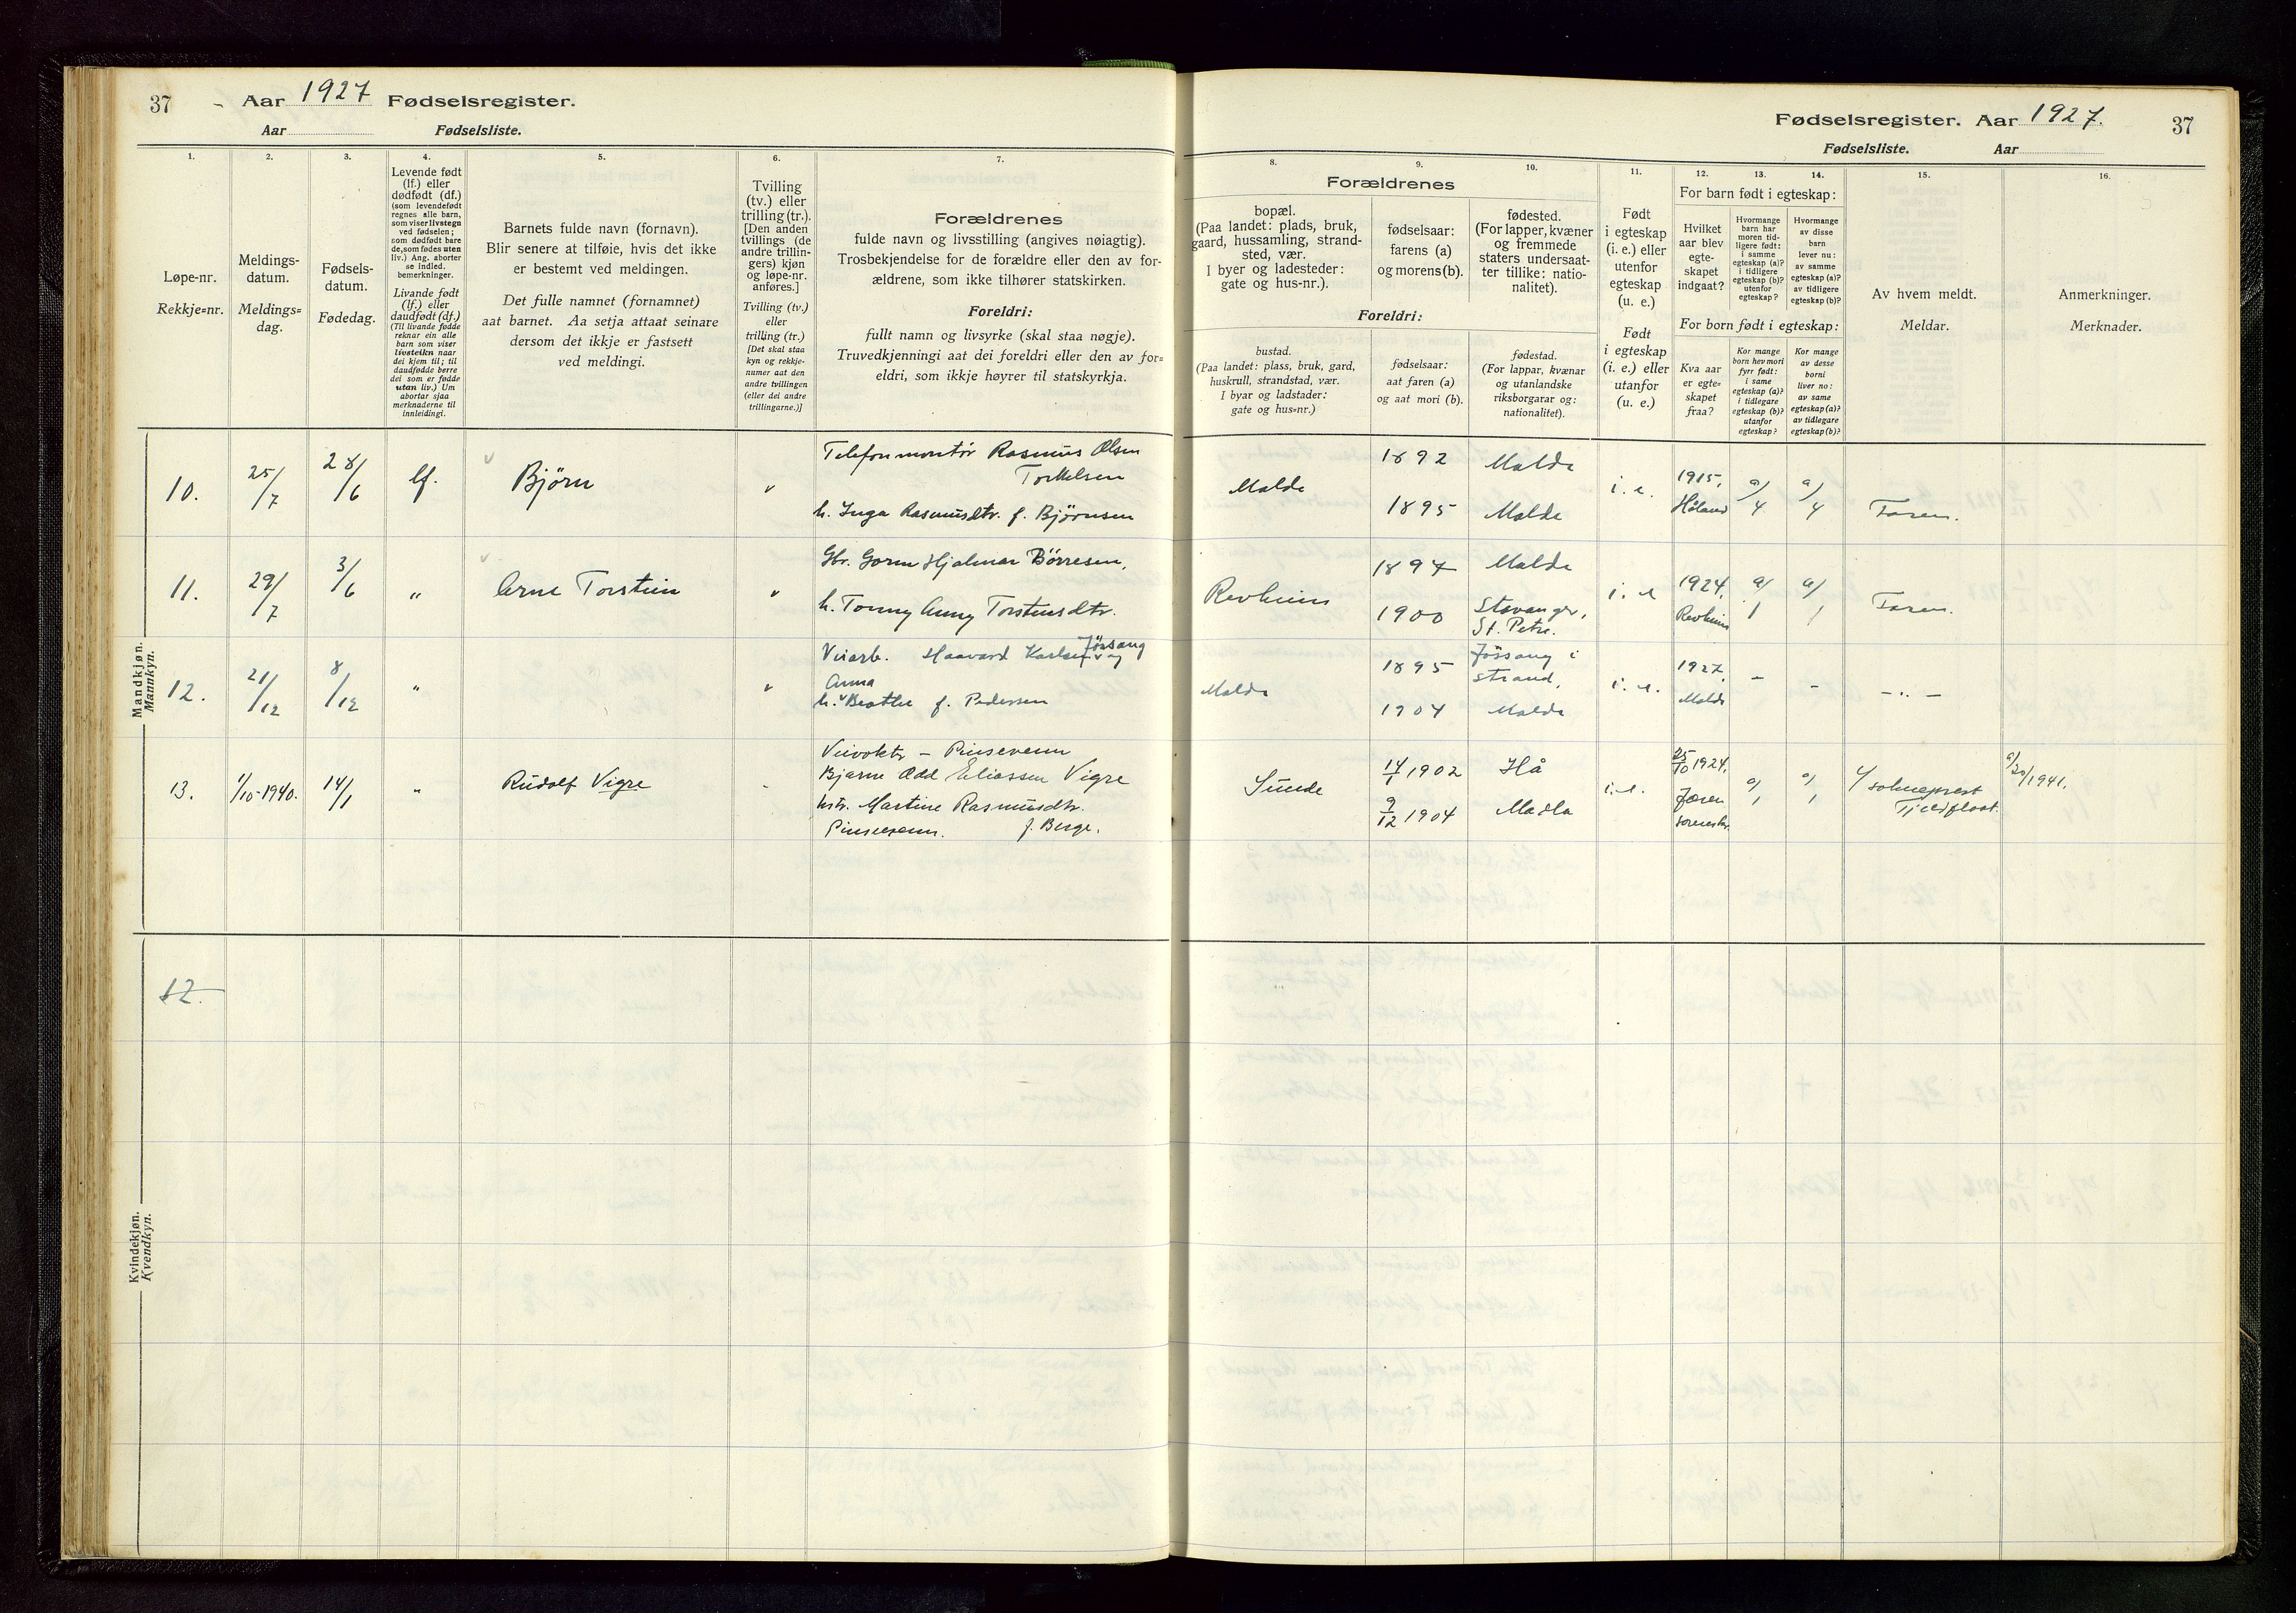 37 Aar 1927 Fødselsregister.
Aar Fødselsliste.
Fødselsregister. Aar 1927. 37
Fødselsliste. Aar
1.
2.
3.
4.
5.
6.
7.
8.
9.
10.
11.
12.
13.
14.
15.
16.
Løpe-nr.
Rekkje=nr.
Meldings-
datum.
Meldings=
dag.
Fødsels-
datum.
Fødedag.
Levende født
(lf.) eller
dødfødt (df.)
(som levendefødt
regnes alle barn,
som viser livstegn
ved fødselen;
som dødfødt bare
de, som fødes uten
liv.) Ang. aborter
se indled.
bemerkninger.
Livande født
(lf.) eller
daudfødt (df.)
(Til livande fødde
reknar ein alle
barn som viser
livsteikn naar
dei kjem til; til
daudfødde berre
dei som er fødde
utan liv.) Um
abortar sjaa
merknaderne til
innleidingi.
Barnets fulde navn (fornavn).
Blir senere at tilføie, hvis det ikke
er bestemt ved meldingen.
Det fulle namnet (fornamnet)
aat barnet. Aa setja attaat seinare
dersom det ikkje er fastsett
ved meldingi.
Tvilling
(tv.) eller
trilling (tr.).
[Den anden
tvillings (de
andre trillin-
gers) kjøn
og løpe-nr.
anføres.]
Tvilling (tv.)
eller
trilling (tr.)
[Det skal staa
kyn og rekkje-
numer aat den
andre tvillingen
(eller dei andre
trillingarne.)]
Forældrenes
fulde navn og livsstilling (angives nøiagtig).
Trosbekjendelse for de forældre eller den av for-
ældrene, som ikke tilhører statskirken.
Foreldri:
fullt namn og livsyrke (skal staa nøgje).
Truvedkjenningi aat dei foreldri eller den av for=
eldri, som ikkje høyrer til statskyrkja.
Forældrenes
bopæl.
(Paa landet: plads, bruk,
gaard, hussamling, strand-
sted, vær.
I byer og ladesteder:
gate og hus-nr.).
fødselsaar:
farens (a)
og morens (b).
fødested.
(For lapper, kvæner
og fremmede
staters undersaat-
ter tillike: natio-
nalitet).
Foreldri:
bustad.
(Paa landet: plass, bruk, gard,
huskrull, strandstad, vær.
I byar og ladstader:
gate og hus=nr.)
fødselsaar:
aat faren (a)
og aat mori (b).
fødestad.
(For lappar, kvænar
og utanlandske
riksborgarar og:
nationalitet).
Født
i egteskap
(i. e.) eller
utenfor
egteskap
(u. e.)
Født
i egteskap
(i. e.) eller
utanfor
(u. e.)
For barn født i egteskap:
Hvilket
aar blev
egte-
skapet
indgaat?
Hvormange
barn har
moren tid-
ligere født:
i samme
egteskap (a)?
i tidligere
egteskap (b)?
utenfor
egteskap?
Hvormange
av disse
barn
lever nu:
av samme
egteskap (a)?
av tidligere
egteskap (b)?
For born født i egteskap:
Kva aar
er egte=
skapet
fraa?
Kor mange
born hev mori
fyrr født:
i same
egteskap (a)?
i tidlegare
egteskap (b)?
utanfor
egteskap?
Kor mange
av desse
borni
liver no:
av same
egteskap (a)?
av tidlegare
egteskap (b)?
Av hvem meldt.
Meldar.
Anmerkninger.
Merknader.
Mandkjøn.
Mannkyn.
10. 25/7 28/6 lf. Björn
Telefonmontör Rasmus Olsen
Torkelsen
h. Inga Rasmusdtr. f. Björnsen
Malde
1892 Malde
1895 Malde
i. e. 1915, Håland a/4 a/4 Faren.
11. 29/7 3/6 „ Arne Torstein
Gbr. Gorm Hjalmar Börresen,
h. Tonny Anny Torstensdtr.
Revheim
1897 Malde
1900 Stavanger, St. Petri.
i. e 1924, Revheim a/1 a/1 Faren.
12. 21/12 8/12 „
Veiarb. Haavard Karlsen Jössang
Anna
h. Beathe f. Pedersen
Malde
1895 Jössang i Strand,
1904 Malde
i. e. 1927, Malde - - - „ -
13. 1/10-1940. 14/1 „ Rudolf Vigre
Veivokter – Pinsevenn
Bjarne Odd Eliassen Vigre
hstr. Martine Rasmusdtr.
Pinsevenn. f. Berge.
Sunde
14/1 1902 Hå
9/12 1904 Madla
i. e. 25/10 1924, Jæren sorenskr. a/1 a/1 sokneprest
Tjeldflaat.
/1941.
12.
Kvindekjøn.
Kvendkyn.